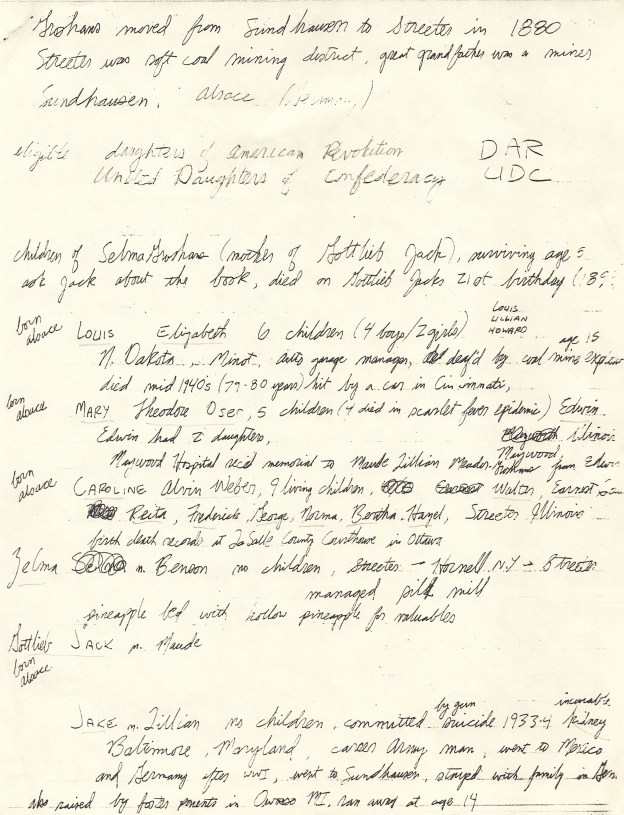 Groshans moved from Sundhausen to Streeter in 1880
Streeter was soft coal mining district, great grandfather was a miner
Sundhausen, Alsace (Germany)
eligible daughters of American Revolution DAR
United Daughters of Confederacy UDC
children of Selma Groshans (mother of Gottlieb Jack), surviving age 5
ask Jack about the book, died on Gottlieb Jacks 21st birthday
born alsace
LOUIS Elizabeth 6 children (4 boys/2 girls) LOUIS LILLIAN HOWARD
N. Dakota, Minot, auto garage manager, deaf'd by coal mine explosion age 15
died mid 1940's (79-80 years) hit by a car in Cincinnati,
born alsace
MARY Theodore Oser, 5 children (4 died in scarlet fever epidemic) Edwin
Edwin had 2 daughters, Maywood, Illinois
Maywood Hospital rec'd memorial to Maude Lillian Meador Groshans from Edwin
born alsace
CAROLINE Alvin Weber, 9 living children, Walter, Earnest
Reita, Frederick, George, Norma, Bertha, Hazel, Streeter Illinois
birth death records at LaSalle County Courthouse in Ottawa
Zelma m. Benson no children, Streeter → Hornell N.Y → Streeter
managed silk mill
pineapple bed with hollow pineapple for valuables
Gottlieb JACK m. Maude
born alsace
JAKE m. Lillian no children, committed suicide by gun 1933-4 incurable kidney
Baltimore, Maryland, career Army man, went to Mexico
and Germany after WWI, went to Sundhausen, stayed with family in Ger.
also raised by foster parents in Owosso MI, ran away at age 14